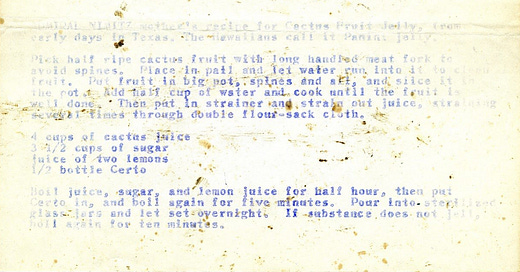 ADMIRAL NIMITZ mother's recipe for Cactus Fruit Jelly, from
early days in Texas. The Hawaiians call it Panini jelly.
Pick half ripe cactus fruit with long handled meat fork to
avoid spines. Place in pail and let water run into it to
fruit. Put fruit in big pot, spines and all, and slice
the pot. Add half cup of water and cook until the fruit is
well done. Then put in strainer and strain out juice, straining
several times through double flour-sack cloth.
4 cups of cactus juice
3 1/2 cups of sugar
juice of two lemons
1/2 bottle Certo
Boil juice, sugar, and lemon juice for half hour, then put
Certo in, and boil again for five minutes. Pour into sterilized
glass jars and let set overnight. If substance does not jell,
boil again for ten minutes.